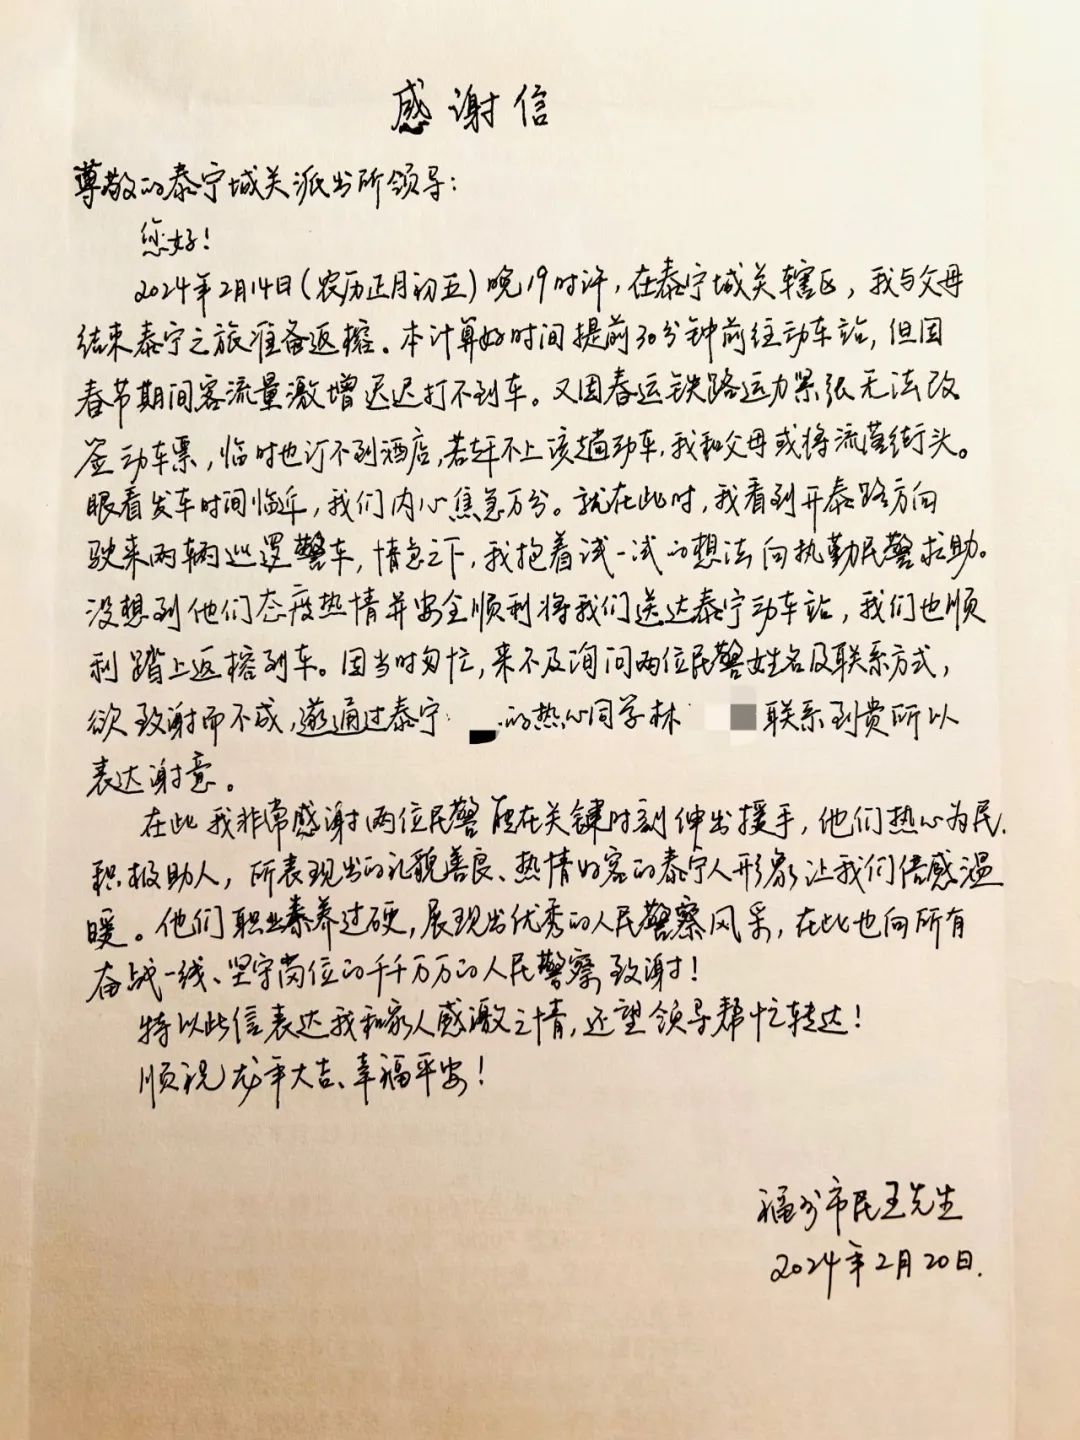 感谢信
尊敬的泰宁城关派出所领导：
您好！
2024年2月14日（农历正月初五）晚19时许，在泰宁城关辖区，我与父母
结束泰宁之旅准备返榕。本计算好时间提前30分钟前往动车站，但因
春节期间客流量激增迟迟打不到车。又因春运铁路运力紧张无法改
签动车票，临时也订不到酒店，若赶不上该趟动车，我和父母或将流落街头。
眼看发车时间临近，我们内心焦急万分。就在此时，我看到开泰路方向
驶来两辆巡逻警车，情急之下，我抱着试一试的想法向执勤民警求助。
没想到他们态度热情并安全顺利将我们送达泰宁动车站，我们也顺
利踏上返榕列车。因当时匆忙，来不及询问两位民警姓名及联系方式，
欲致谢而不成，遂通过泰宁 的热心同学林 联系到贵所以
表达谢意。
在此我非常感谢两位民警能在关键时刻伸出援手，他们热心为民、
积极助人，所表现出的礼貌善良、热情好客的泰宁人形象让我们倍感温
暖。他们职业素养过硬，展现出优秀的人民警察风采，在此也向所有
奋战一线、坚守岗位的千千万万的人民警察致谢！
特以此信表达我和家人感激之情，还望领导帮忙转达！
顺祝龙年大吉、幸福平安！
福州市民王先生
2024年2月20日.